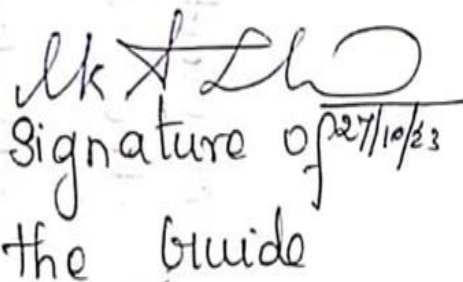 Signature of 27/10/23
the Guide